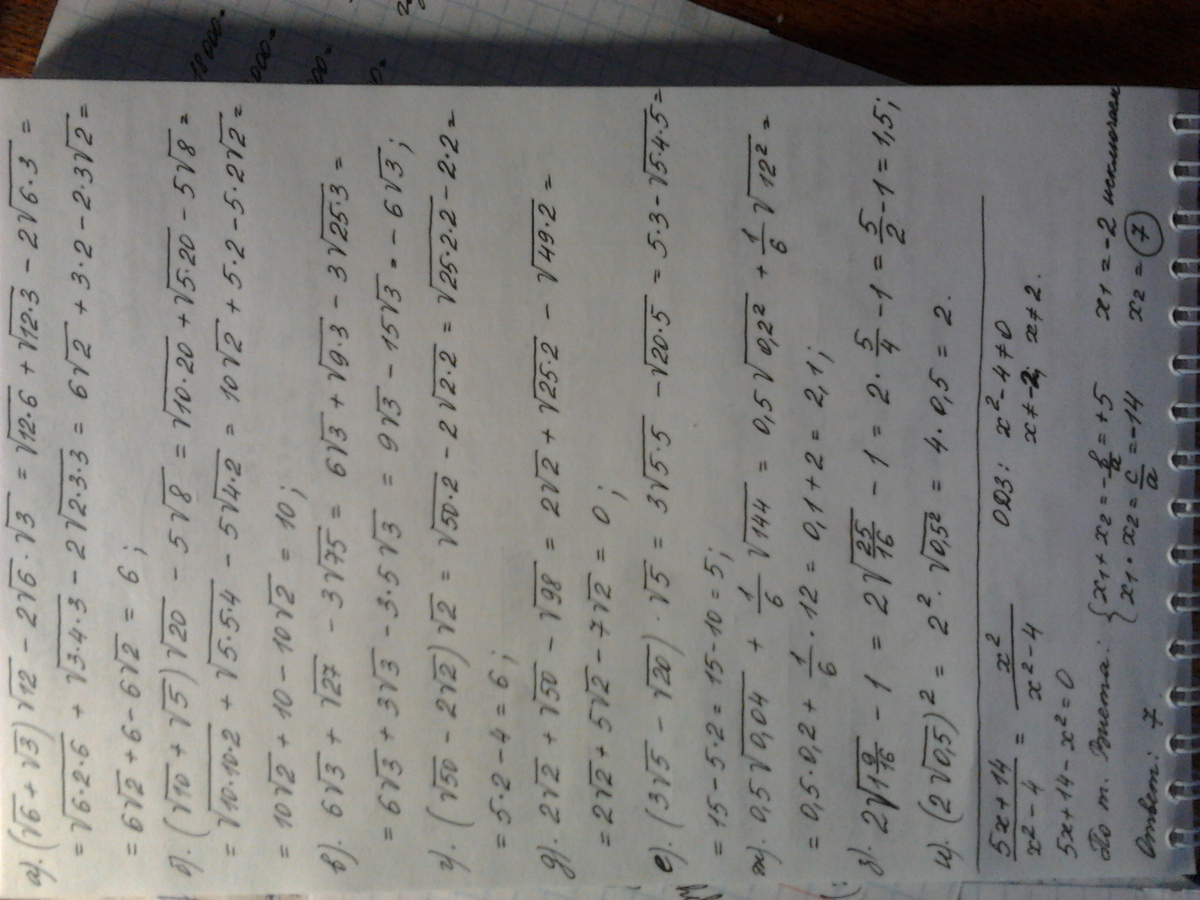 а). (√6 + √3) √12 - 2√6 · √3 = √12·6 + √12·3 - 2√6·3 =
= √6·2·6 + √3·4·3 - 2√2·3·3 = 6√2 + 3·2 - 2·3√2 =
= 6√2 + 6 - 6√2 = 6;
б). (√10 + √5) √20 - 5√8 = √10·20 + √5·20 - 5√8 =
= √10·10·2 + √5·5·4 - 5√4·2 = 10√2 + 5·2 - 5·2√2 =
= 10√2 + 10 - 10√2 = 10;
в). 6√3 + √27 - 3√75 = 6√3 + √9·3 - 3√25·3 =
= 6√3 + 3√3 - 3·5√3 = 9√3 - 15√3 = - 6√3;
г). (√50 - 2√2) √2 = √50·2 - 2√2·2 = √25·2·2 - 2·2 =
= 5·2 - 4 = 6;
д). 2√2 + √50 - √98 = 2√2 + √25·2 - √49·2 =
= 2√2 + 5√2 - 7√2 = 0;
е). (3√5 - √20) · √5 = 3√5·5 - √20·5 = 5·3 - √5·4·5 =
= 15 - 5·2 = 15 - 10 = 5;
ж). 0,5√0,04 + 1/6 √144 = 0,5√0,2² + 1/6 √12² =
= 0,5·0,2 + 1/6 · 12 = 0,1 + 2 = 2,1;
з). 2√1 9/16 - 1 = 2√25/16 - 1 = 2· 5/4 - 1 = 5/2 - 1 = 1,5;
и). (2√0,5)² = 2² · √0,5² = 4 · 0,5 = 2.
5x + 14 / x² - 4 = x² / x² - 4 ОДЗ: x² - 4 ≠ 0
5x + 14 - x² = 0 x ≠ -2; x ≠ 2.
По т. Виета: { x1 + x2 = - b/a = +5 x1 = -2 исключаем
x1 · x2 = c/a = -14 x2 = 7
Ответ: 7
18000=
000=
000=
0=